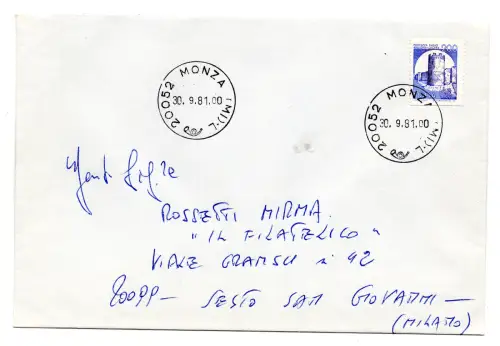 20052 MONZA (MI)-L
30. 9.81.00
20052 MONZA (MI)-L
30. 9.81.00
200
Gent.
ROSSETTI MIRMA
"IL FILATELICO"
VIALE GRAMSCI n 42
20099 - SESTO SAN GIOVANNI -
(MILANO)